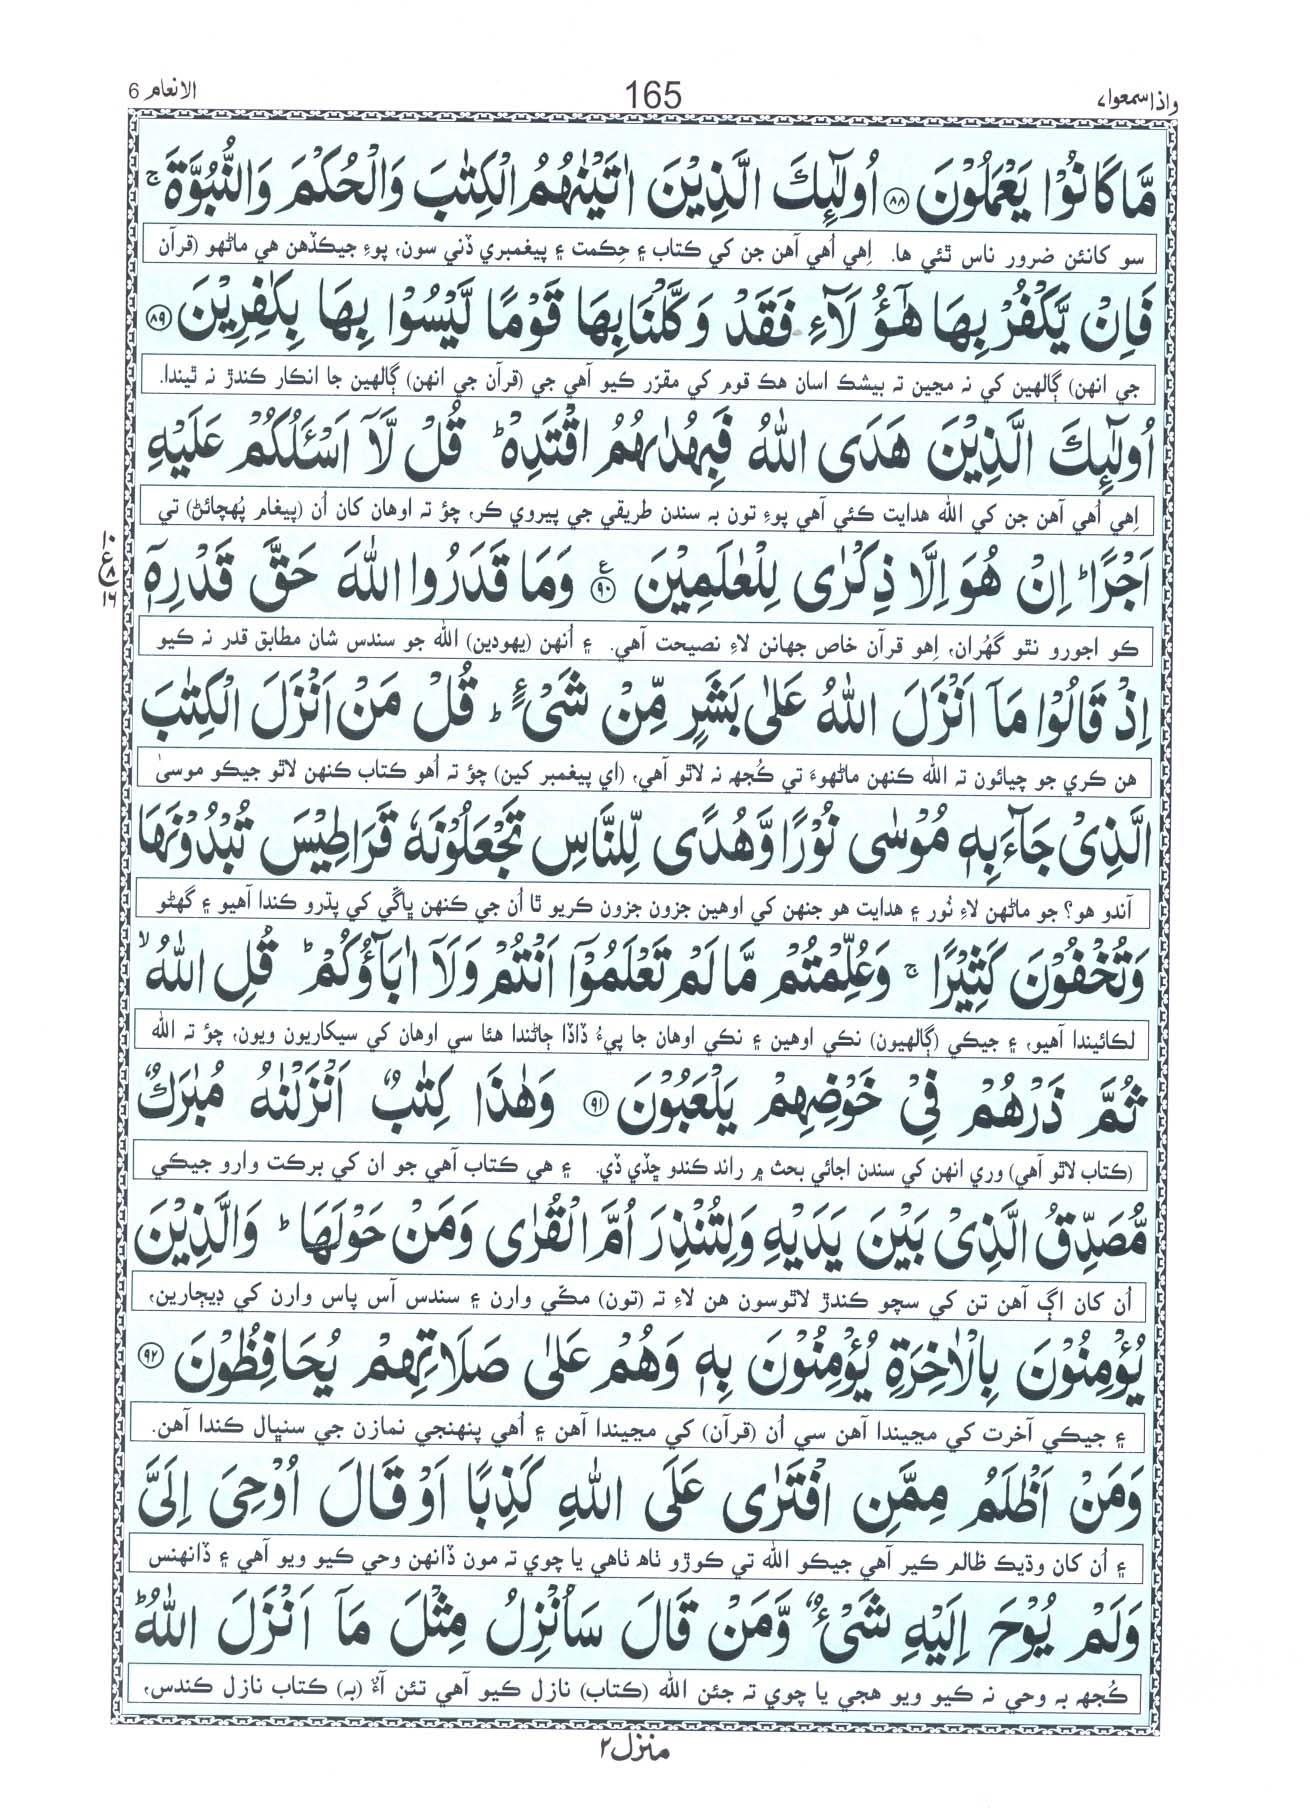 واذا سمعوا۷
165
الانعام 6
مَّا كَانُوْا يَعْمَلُوْنَ ۝۸۸ اُولٰٓئِكَ الَّذِيْنَ اٰتَيْنٰهُمُ الْكِتٰبَ وَالْحُكْمَ وَالنُّبُوَّةَ ۚ
سو کانئن ضرور ناس ٿئي ها. اِهي اُهي آهن جن کي ڪتاب ۽ حِڪمت ۽ پيغمبري ڏني سون، پوءِ جيڪڏهن هي ماڻهو (قرآن
فَاِنْ يَّكْفُرْ بِهَا هٰٓؤُلَآءِ فَقَدْ وَكَّلْنَا بِهَا قَوْمًا لَّيْسُوْا بِهَا بِكٰفِرِيْنَ ۝۸۹
جي انهن) ڳالهين کي نہ مڃين تہ بيشڪ اسان هڪ قوم کي مقرّر ڪيو آهي جي (قرآن جي انهن) ڳالهين جا انڪار ڪندڙ نہ ٿيندا.
اُولٰٓئِكَ الَّذِيْنَ هَدَى اللّٰهُ فَبِهُدٰىهُمُ اقْتَدِهْ ؕ قُلْ لَّآ اَسْـَٔلُكُمْ عَلَيْهِ
اِهي اُهي آهن جن کي الله هدايت ڪئي آهي پوءِ تون بہ سندن طريقي جي پيروي ڪر، چؤ تہ اوهان کان اُن (پيغام پُهچائڻ) تي
اَجْرًا ؕ اِنْ هُوَ اِلَّا ذِكْرٰى لِلْعٰلَمِيْنَ ۝۹۰ ع وَمَا قَدَرُوا اللّٰهَ حَقَّ قَدْرِهٖٓ
۱۰ ع ۸ ۱۶
ڪو اجورو نٿو گھُران، اِهو قرآن خاص جهانن لاءِ نصيحت آهي. ۽ اُنهن (يهودين) الله جو سندس شان مطابق قدر نہ ڪيو
اِذْ قَالُوْا مَآ اَنْزَلَ اللّٰهُ عَلٰى بَشَرٍ مِّنْ شَىْءٍ ؕ قُلْ مَنْ اَنْزَلَ الْكِتٰبَ
هن ڪري جو چيائون تہ الله ڪنهن ماڻهوءَ تي ڪُجھہ نہ لاٿو آهي، (اي پيغمبر کين) چؤ تہ اُهو ڪتاب ڪنهن لاٿو جيڪو موسىٰ
الَّذِىْ جَآءَ بِهٖ مُوْسٰى نُوْرًا وَّهُدًى لِّلنَّاسِ تَجْعَلُوْنَهٗ قَرَاطِيْسَ تُبْدُوْنَهَا
آندو هو؟ جو ماڻهن لاءِ نُور ۽ هدايت هو جنهن کي اوهين جزون جزون ڪريو ٿا اُن جي ڪنهن ڀاڱي کي پڌرو ڪندا آهيو ۽ گھڻو
وَتُخْفُوْنَ كَثِيْرًا ۚ وَعُلِّمْتُمْ مَّا لَمْ تَعْلَمُوْٓا اَنْتُمْ وَلَآ اٰبَآؤُكُمْ ؕ قُلِ اللّٰهُ ۙ
لڪائيندا آهيو، ۽ جيڪي (ڳالهيون) نڪي اوهين ۽ نڪي اوهان جا پيءُ ڏاڏا ڄاڻندا هئا سي اوهان کي سيکاريون ويون، چؤ تہ الله
ثُمَّ ذَرْهُمْ فِىْ خَوْضِهِمْ يَلْعَبُوْنَ ۝۹۱ وَهٰذَا كِتٰبٌ اَنْزَلْنٰهُ مُبٰرَكٌ
(ڪتاب لاٿو آهي) وري انهن کي سندن اجائي بحث ۾ راند ڪندو ڇڏي ڏي. ۽ هي ڪتاب آهي جو ان کي برڪت وارو جيڪي
مُّصَدِّقُ الَّذِىْ بَيْنَ يَدَيْهِ وَلِتُنْذِرَ اُمَّ الْقُرٰى وَمَنْ حَوْلَهَا ؕ وَالَّذِيْنَ
اُن کان اڳ آهن تن کي سچو ڪندڙ لاٿوسون هن لاءِ تہ (تون) مڪّي وارن ۽ سندس آس پاس وارن کي ڊيڄارين،
يُؤْمِنُوْنَ بِالْاٰخِرَةِ يُؤْمِنُوْنَ بِهٖ وَهُمْ عَلٰى صَلَاتِهِمْ يُحَافِظُوْنَ ۝۹۲
۽ جيڪي آخرت کي مڃيندا آهن سي اُن (قرآن) کي مڃيندا آهن ۽ اُهي پنهنجي نمازن جي سنڀال ڪندا آهن.
وَمَنْ اَظْلَمُ مِمَّنِ افْتَرٰى عَلَى اللّٰهِ كَذِبًا اَوْ قَالَ اُوْحِىَ اِلَىَّ
۽ اُن کان وڌيڪ ظالم ڪير آهي جيڪو الله تي ڪوڙو ٺاھ ٺاهي يا چوي تہ مون ڏانهن وحي ڪيو ويو آهي ۽ ڏانهنس
وَلَمْ يُوْحَ اِلَيْهِ شَىْءٌ وَّمَنْ قَالَ سَاُنْزِلُ مِثْلَ مَآ اَنْزَلَ اللّٰهُ ؕ
ڪُجھہ بہ وحي نہ ڪيو ويو هجي يا چوي تہ جئن الله (ڪتاب) نازل ڪيو آهي تئن آءٌ (بہ) ڪتاب نازل ڪندس،
منزل۲